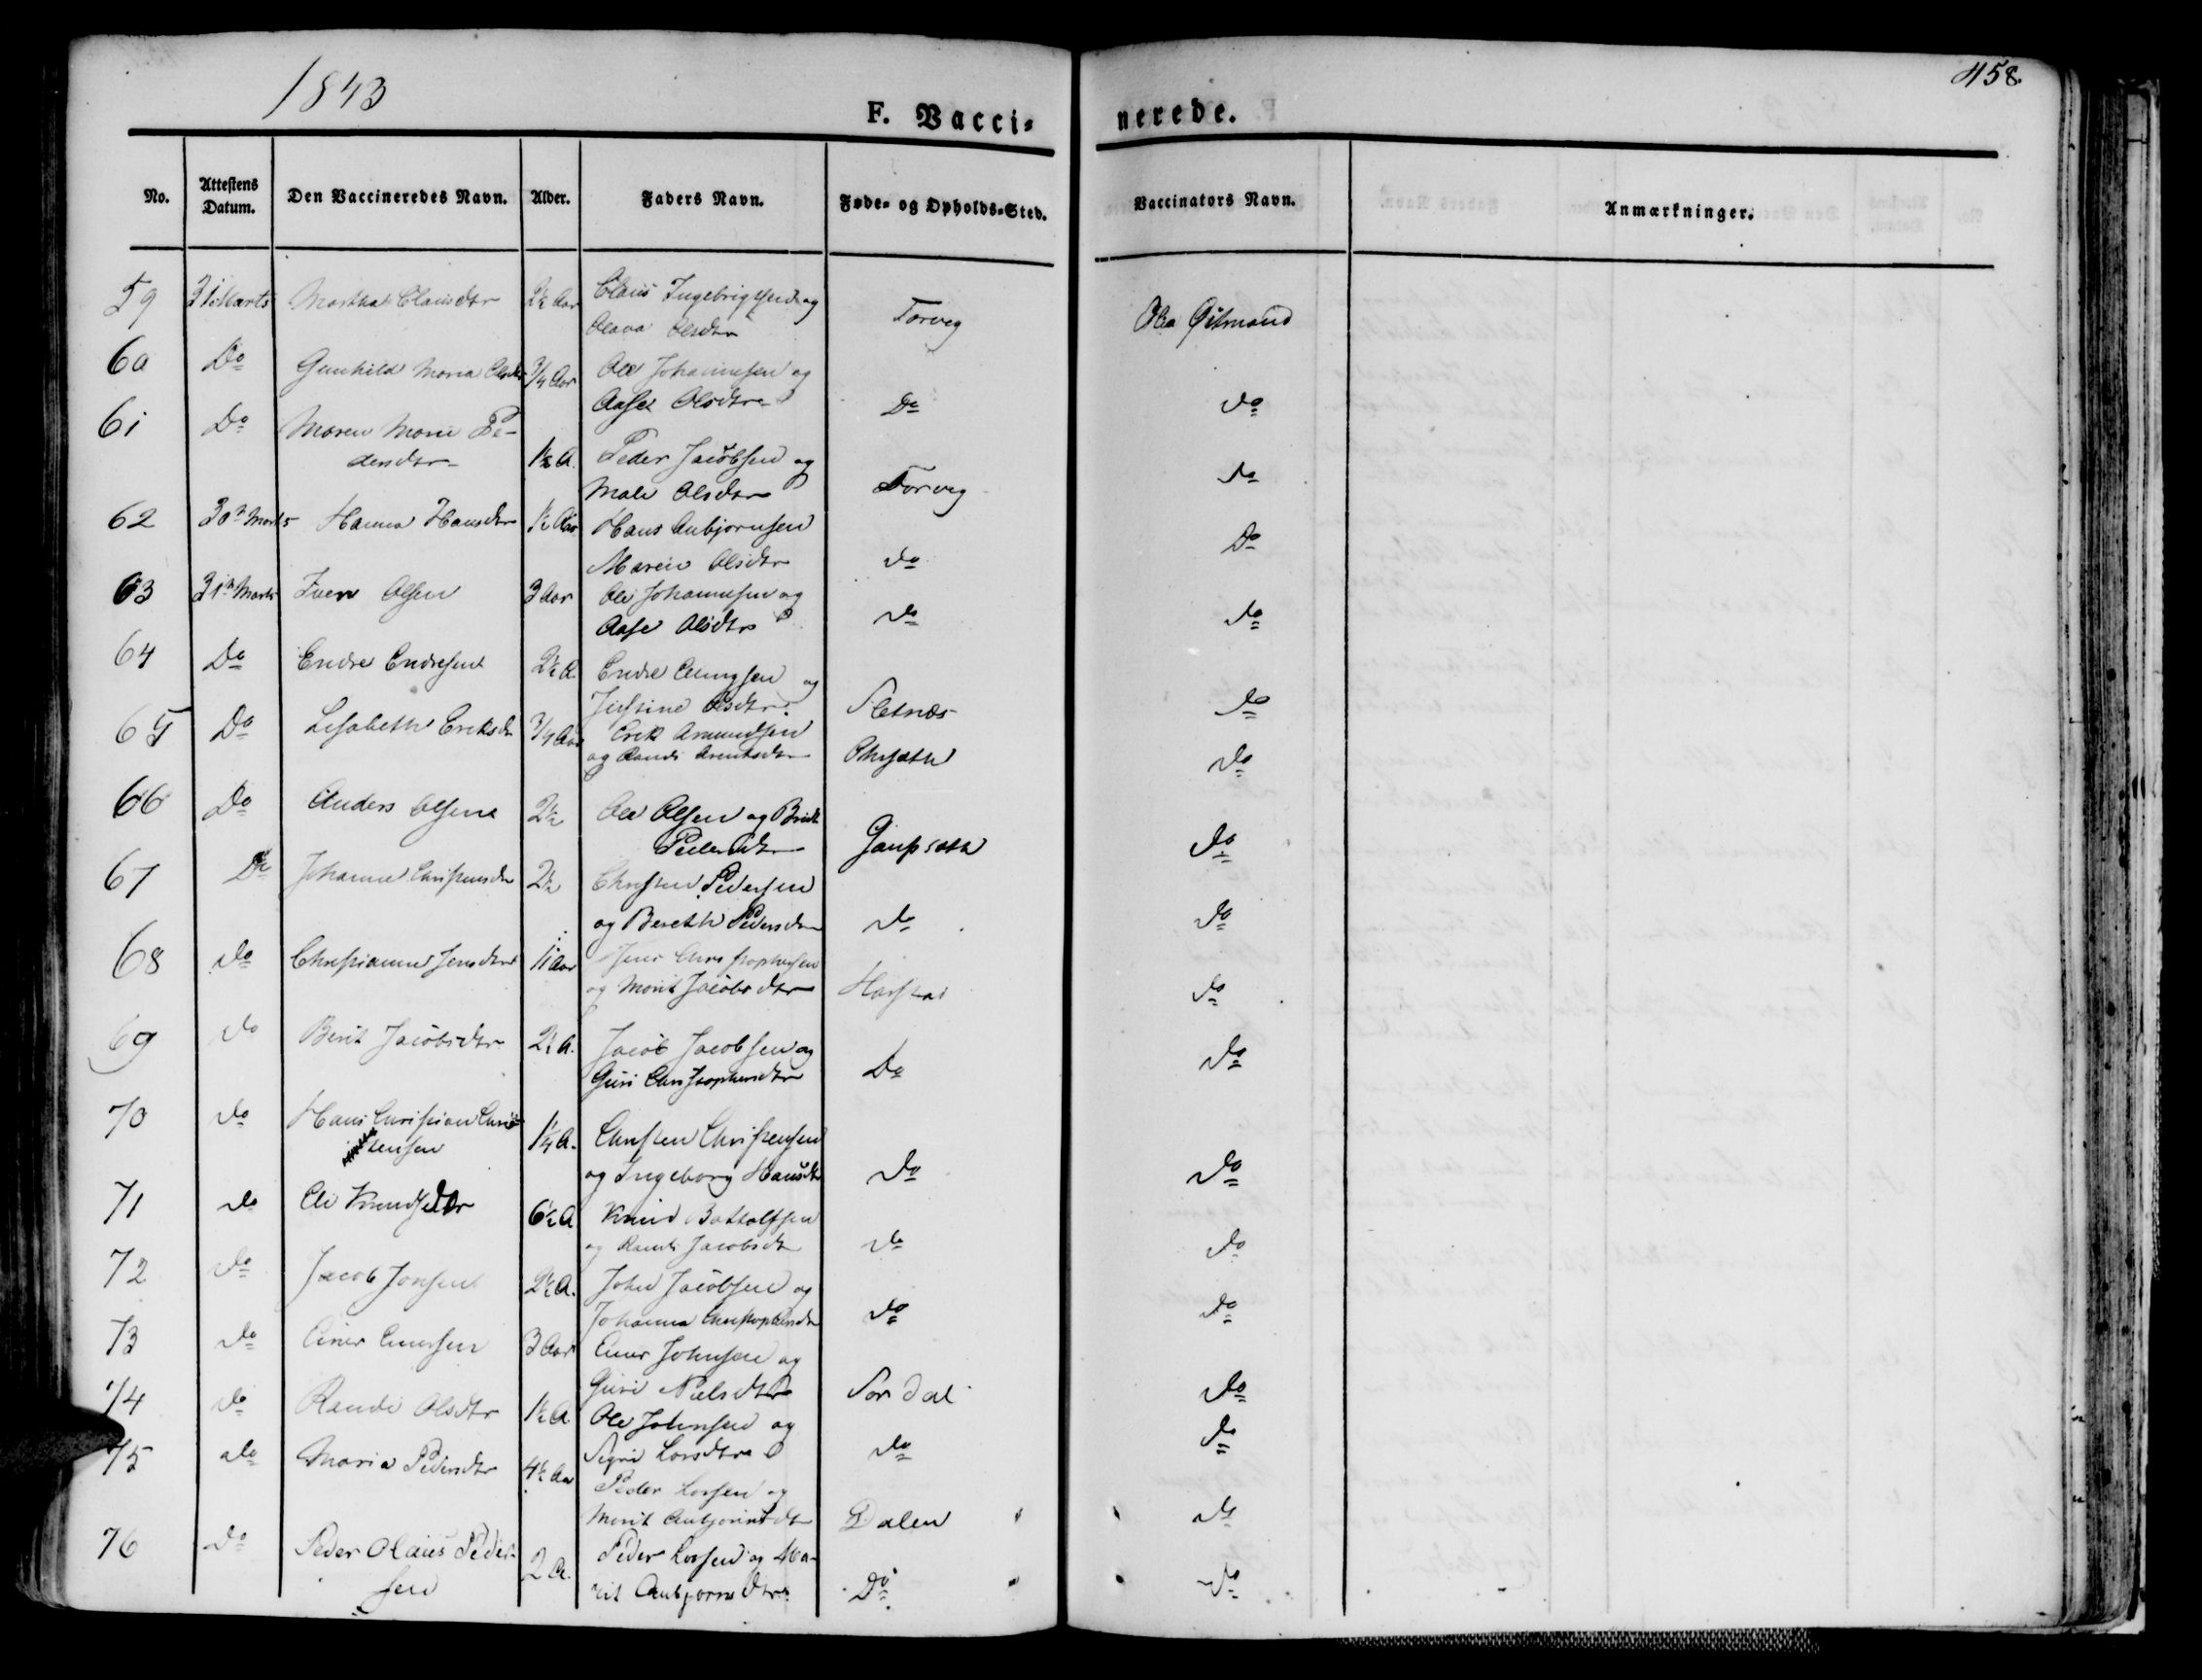 1843
458.
F. Vacci-
nerede.
No. Attestens Datum. Den Vaccineredes Navn. Alder. Faders Navn. Føde- og Opholds-Sted. Vaccinators Navn. Anmærkninger.
59 31 Marts Martha Clausdtr 2½ Aar Claus Ingebrigtsen og
Olsdtr Torvig
60 Do Gunhild Maria Olsdtr 3/4 Aar Ole Johannesen og
Aase Olsdtr Do Do
61 Do Maren Marie Pe-
dersdtr 1½ A. Peder Jacobsen og
Mali Olsdtr Torvig Do
62 30te Marts Hanna Hansdtr 1½ Aar Hans Anbjørnsen
Maren Olsdtr do Do
63 31te Marts Iver Olsen 3 Aar Ole Johannesen og
Aase Olsdtr do do
64 Do Endre Endresen 2½ A. Endre og
Olsdtr. Sletnes do
65 Do Lisabeth Eriksdtr 3/4 Aar Erik Amundsen
og Randi do
66 Do Anders Olsen 2½ Ole Olsen og Brit
Pedersdtr Gaupsæth do
67 Do Johanne Christensdtr 2½ Christen Pedersen
og Bereth Pedersdtr do do
68 do Christianne Jensdtr 11 Aar Jens Christophersen
og Marit Jacobsdtr Harstad do
69 do Berit Jacobsdtr 2½ A. Jacob Jacobsen og
Guri Christophersdtr Do do
70 do Hans Christian Chris
tensen 1¼ A. Christen Christensen
og Ingeborg Hansdtr do do
71 do Eli Knudsdtr 6½ A Knud Bottolfsen
og Randi Jacobsdtr do do
72 do Jacob Jonsen 2½ A. John Jacobsen og
Johanna Christophersdtr do do
73 do Einer Einersen 3 Aar Einer Johnsen og
Guri Nielsdtr Sordal do
74 do Randi Olsdtr 1½ A Ole Johnsen og
Sigri Larsdtr do do
75 do Maria Pedersdtr 4½ Aar Peder Larsen og
Marit Anbjørnsdtr Dalen do
76 Do Peder Olaus Peder-
sen 2 A. Peder Larsen og Ma-
rit Anbjørnsdtr. Do. do